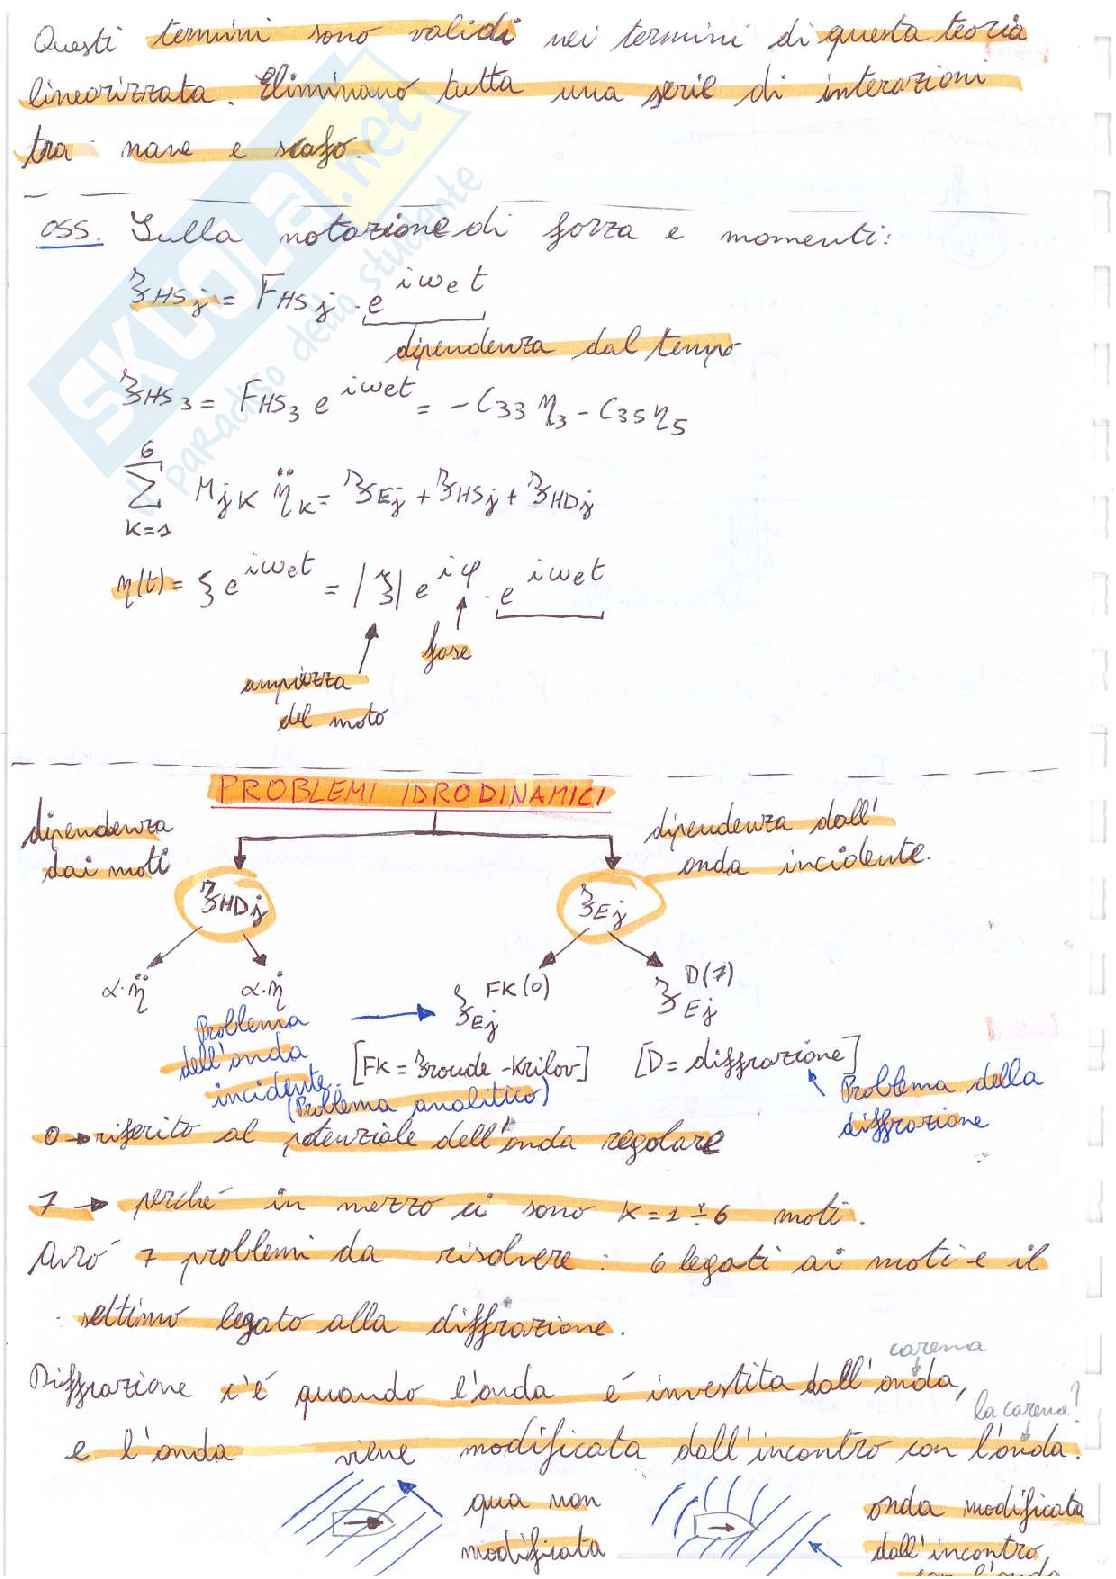 Questi termini sono validi nei termini di questa teoria
linearizzata. Eliminano tutta una serie di interazioni
tra nave e scafo.
OSS. Sulla notazione di forza e momenti:
ℱHSj = FHSj · e^iωet
dipendenza dal tempo
ℱHS3 = FHS3 e^iωet = -C33 η3 - C35 η5
6
∑ Mjk η̈k = ℱEj + ℱHSj + ℱHDj
k=1
η(t) = ξ e^iωet = |ξ| e^iφ · e^iωet
fase
ampiezza
del moto
PROBLEMI IDRODINAMICI
dipendenza
dai moti
dipendenza dall'
onda incidente.
ℱHDj
ℱEj
α·η̈
α·η̇
ℱEj^FK(0)
ℱEj^D(7)
Problema
dell'onda
incidente.
(Problema analitico)
[FK = Froude-Krilov]
[D = diffrazione]
Problema della
diffrazione
0 → riferito al potenziale dell'onda regolare
7 → perché in mezzo ci sono k=1÷6 moti.
Avrò 7 problemi da risolvere: 6 legati ai moti e il
settimo legato alla diffrazione.
carena
Diffrazione c'è quando l'onda è investita dall'onda,
la carena?
e l'onda viene modificata dall'incontro con l'onda.
qua non
modificata
onda modificata
dall'incontro
con l'onda
SKUOLA.net
il paradiso dello studente